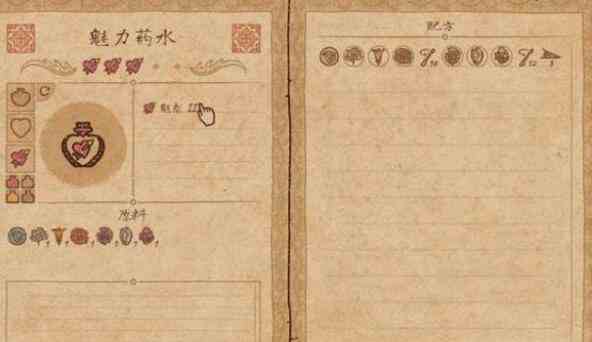 魅力药水
魅力 III
原料
配方